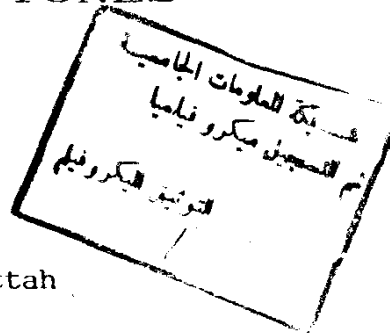 شبكة المعلومات الجامعية
تم التسجيل ميكروفيلميا
التوثيق الميكروفيلم
ttah